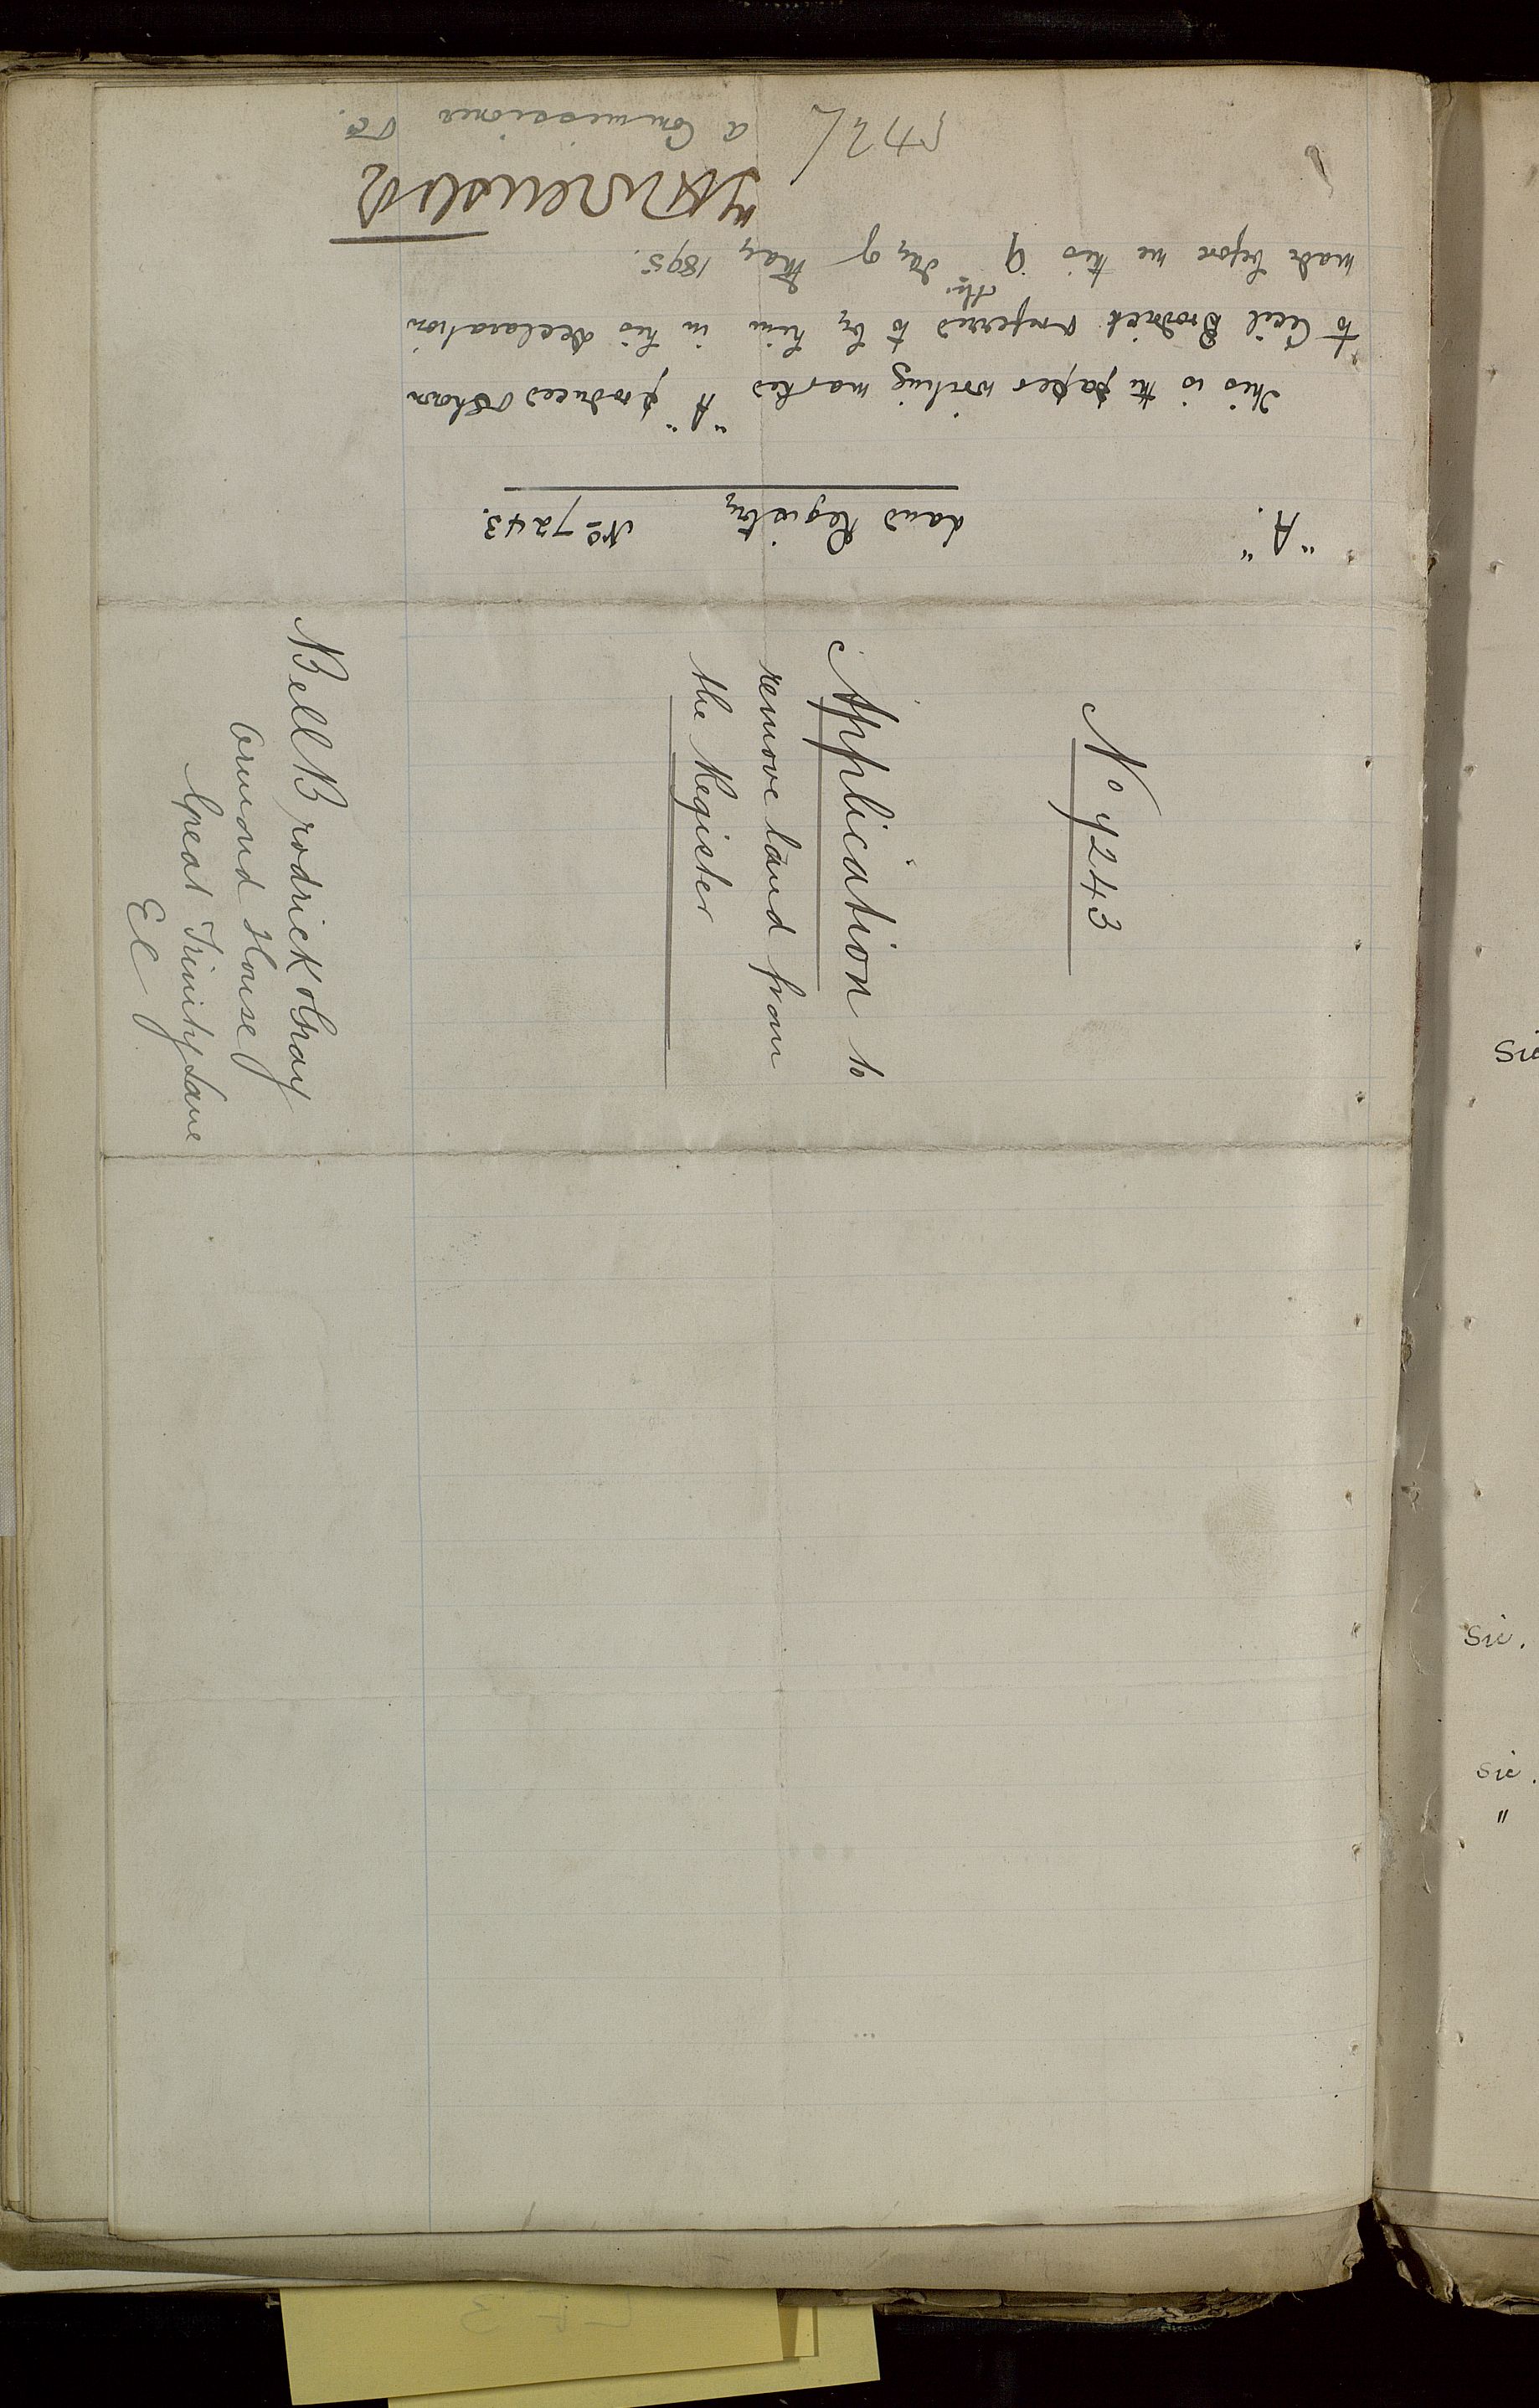 "A".
Land Registry No 7243.
This is the paper writing marked "A" produced & shown
to Cecil Brodrick & referred to by him in his declaration
made before me this 9th day of May 1895.
a Commissioner &c.
No 7243
Application to
remove land from
the Register
Bell Brodrick & Gray
Ormond House
Great Trinity Lane
EC
Sic.
Sic.
"